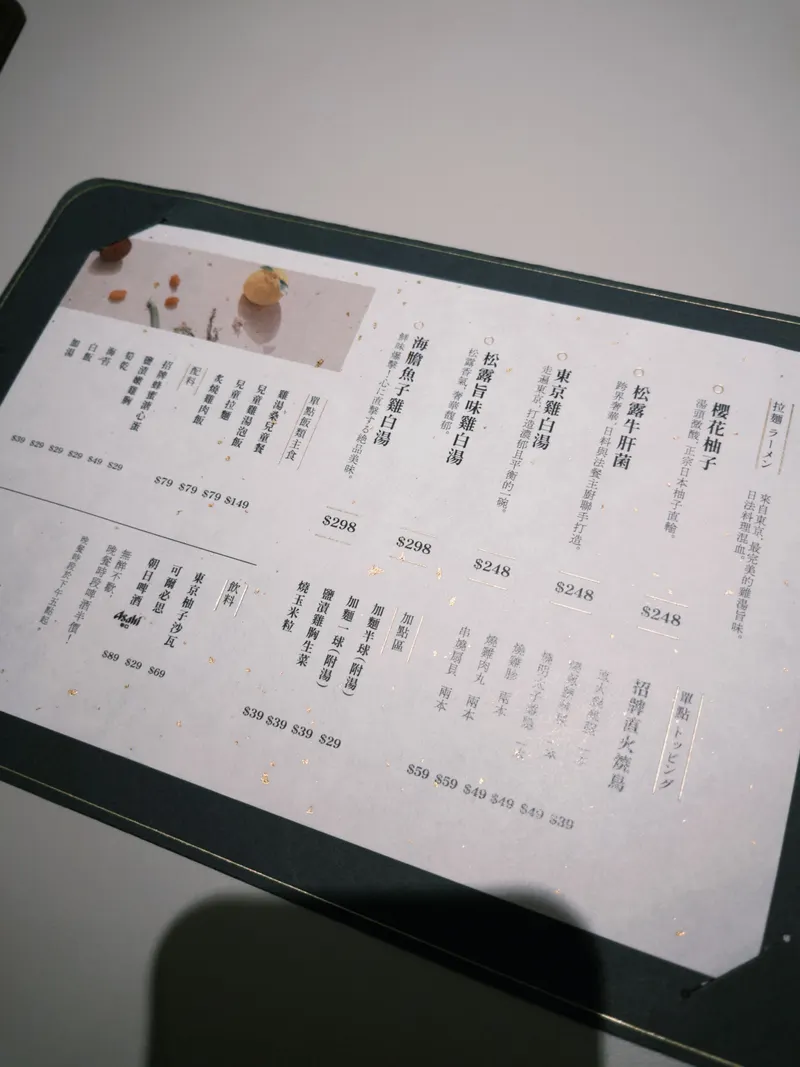 拉麵 ラーメン
來自東京，最完美的雞湯旨味。
日法料理混血。
櫻花柚子
湯頭微酸，正宗日本柚子直輸。
$248
松露牛肝菌
跨界奢華，日料與法餐主廚聯手打造。
$248
東京雞白湯
走遍東京，打造濃郁且平衡的一碗。
$248
松露旨味雞白湯
松露香氣，奢華馥郁。
$298
海膽魚子雞白湯
鮮味爆擊！心に直撃する絶品美味。
$298
單點飯類主食
雞湯桑兒童餐 $149
兒童雞湯泡飯 $79
兒童拉麵 $79
炙燒雞肉飯 $79
配料
招牌蜂蜜糖心蛋 $29
鹽漬嫩雞胸 $49
筍乾 $29
海苔 $29
白飯 $29
加湯 $39
單點 トッピング
招牌直火燒鳥
$39
$49
燒雞胗 兩本 $49
燒雞肉丸 兩本 $59
串燒扇貝 兩本 $59
加點區
加麵半球(附湯) $29
加麵一球(附湯) $39
鹽漬雞胸生菜 $39
燒玉米粒 $39
飲料
東京柚子沙瓦 $69
可爾必思 $29
朝日啤酒 $89
Asahi
無醉不歡，
晚餐時段啤酒半價！
晚餐時段於下午五點起。